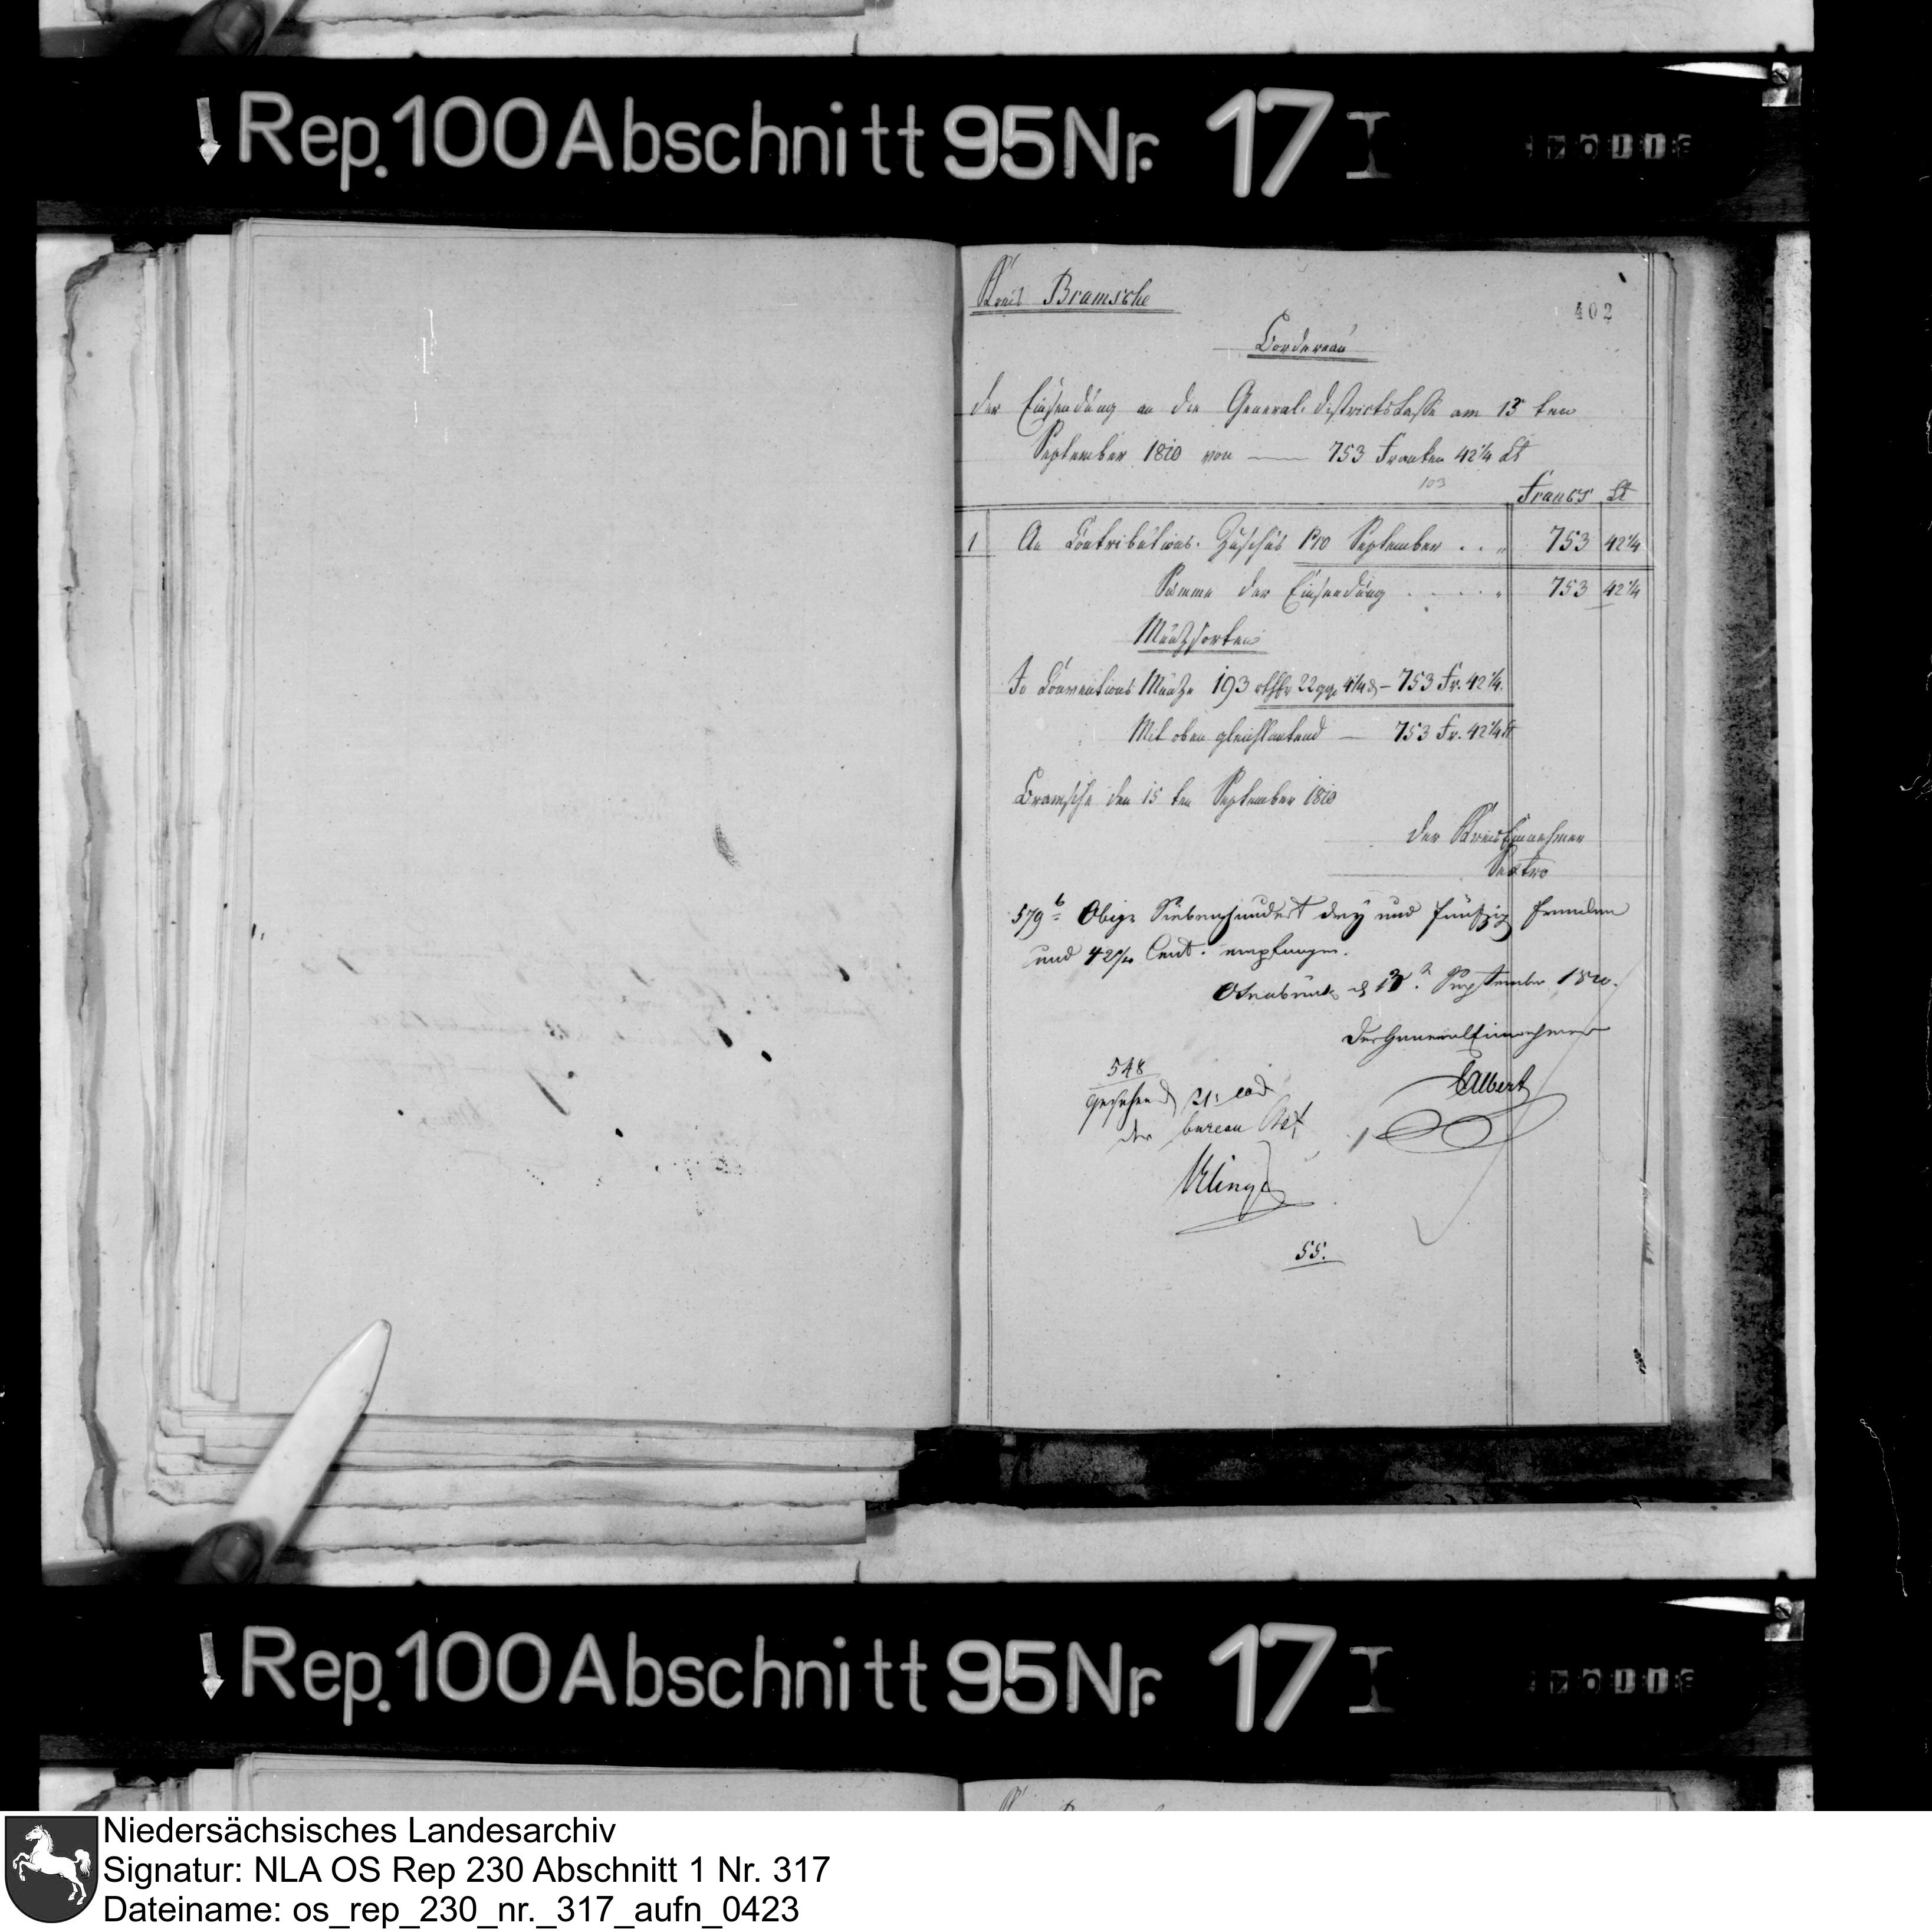 Rep. 100 Abschnitt 95 Nr. 17 I
Kreis Bramsche
402
Bordereau
der Einsendung an die General-Districtskasse am 15 ten
September 1810 von — 753 Franken 42 1/4 Ct
103
Francs Ct
1 An Contributions-Zuschus pro September . . " 753 42 1/4
Summe der Einsendung . . . . . " 753 42 1/4
Müntzsorten
In Conventions Müntze 193 rthlr 22 ggr 4 1/4 d - 753 Fr. 42 1/4.
Mit oben gleichlautend — 753 Fr. 42 1/4 Ct
Bramsche den 15 ten September 1810
der KreisEinnehmer
Sextro
579 b Obige Siebenhundert drey und fünfzig Franken
und 42 Cent. empfangen.
Osnabrück September 1810.
Der GeneralEinnehmer
CAlbert
548
gesehen d 21: eod
der bureau Chef
Klinge
55.
Rep. 100 Abschnitt 95 Nr. 17 I
Niedersächsisches Landesarchiv
Signatur: NLA OS Rep 230 Abschnitt 1 Nr. 317
Dateiname: os_rep_230_nr._317_aufn_0423